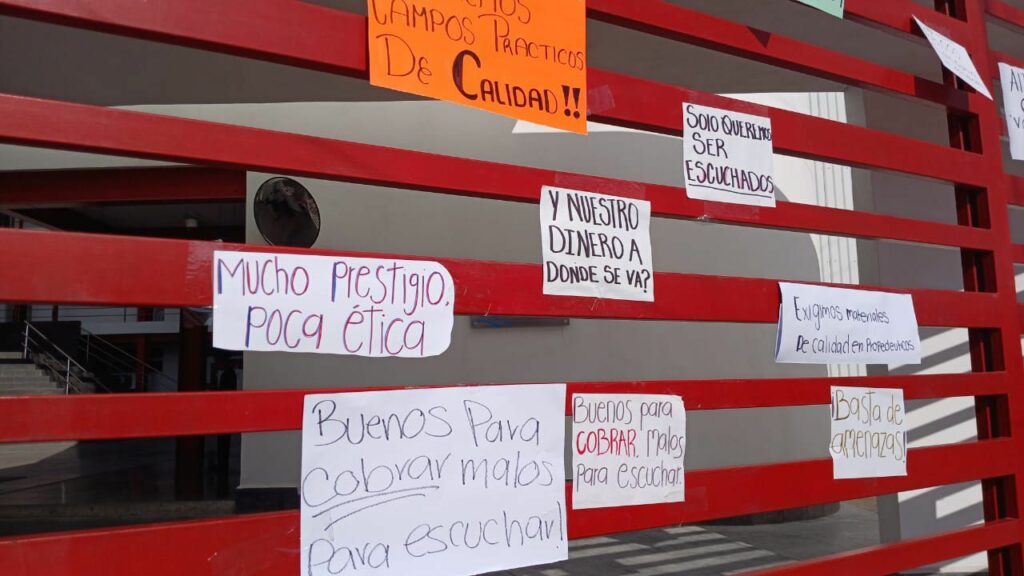 CAMPOS PRACTICOS
De CALIDAD!!
SOLO QUEREMOS
SER
ESCUCHADOS
Y NUESTRO
DINERO A
DONDE SE VA?
Mucho Prestigio,
poca ética
Exigimos materiales
De calidad en Propedeuticos
Buenos Para
cobrar malos
para escuchar!
Buenos para
COBRAR, malos
para escuchar.
¡Basta de
amenazas!